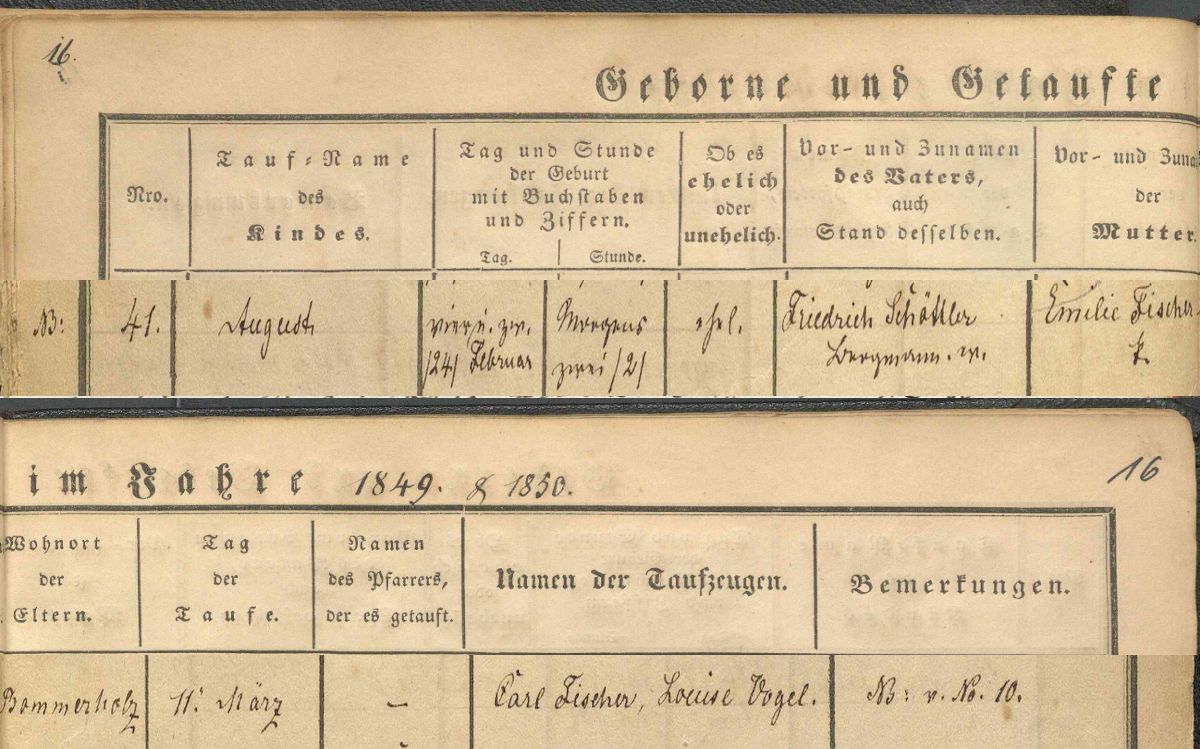 16.
Geborne und Getaufte
Nro.
Tauf-Name
des
Kindes.
Tag und Stunde
der Geburt
mit Buchstaben
und Ziffern.
Tag.
Stunde.
Ob es
ehelich
oder
unehelich.
Vor- und Zunamen
des Vaters,
auch
Stand desselben.
Vor- und Zuna
der
Mutter.
NB:
41.
August
vier u. zw.
/24/ Februar
Morgens
zwei /2/
ehl.
Friedrich Schöttler
Bergmann. w.
Emilie Fischer
im Jahre 1849. & 1850.
16
Wohnort
der
Eltern.
Tag
der
Taufe.
Namen
des Pfarrers,
der es getauft.
Namen der Taufzeugen.
Bemerkungen.
Bommerholz
11. März
–
Carl Fischer, Louise Vogel.
NB: v. No. 10.